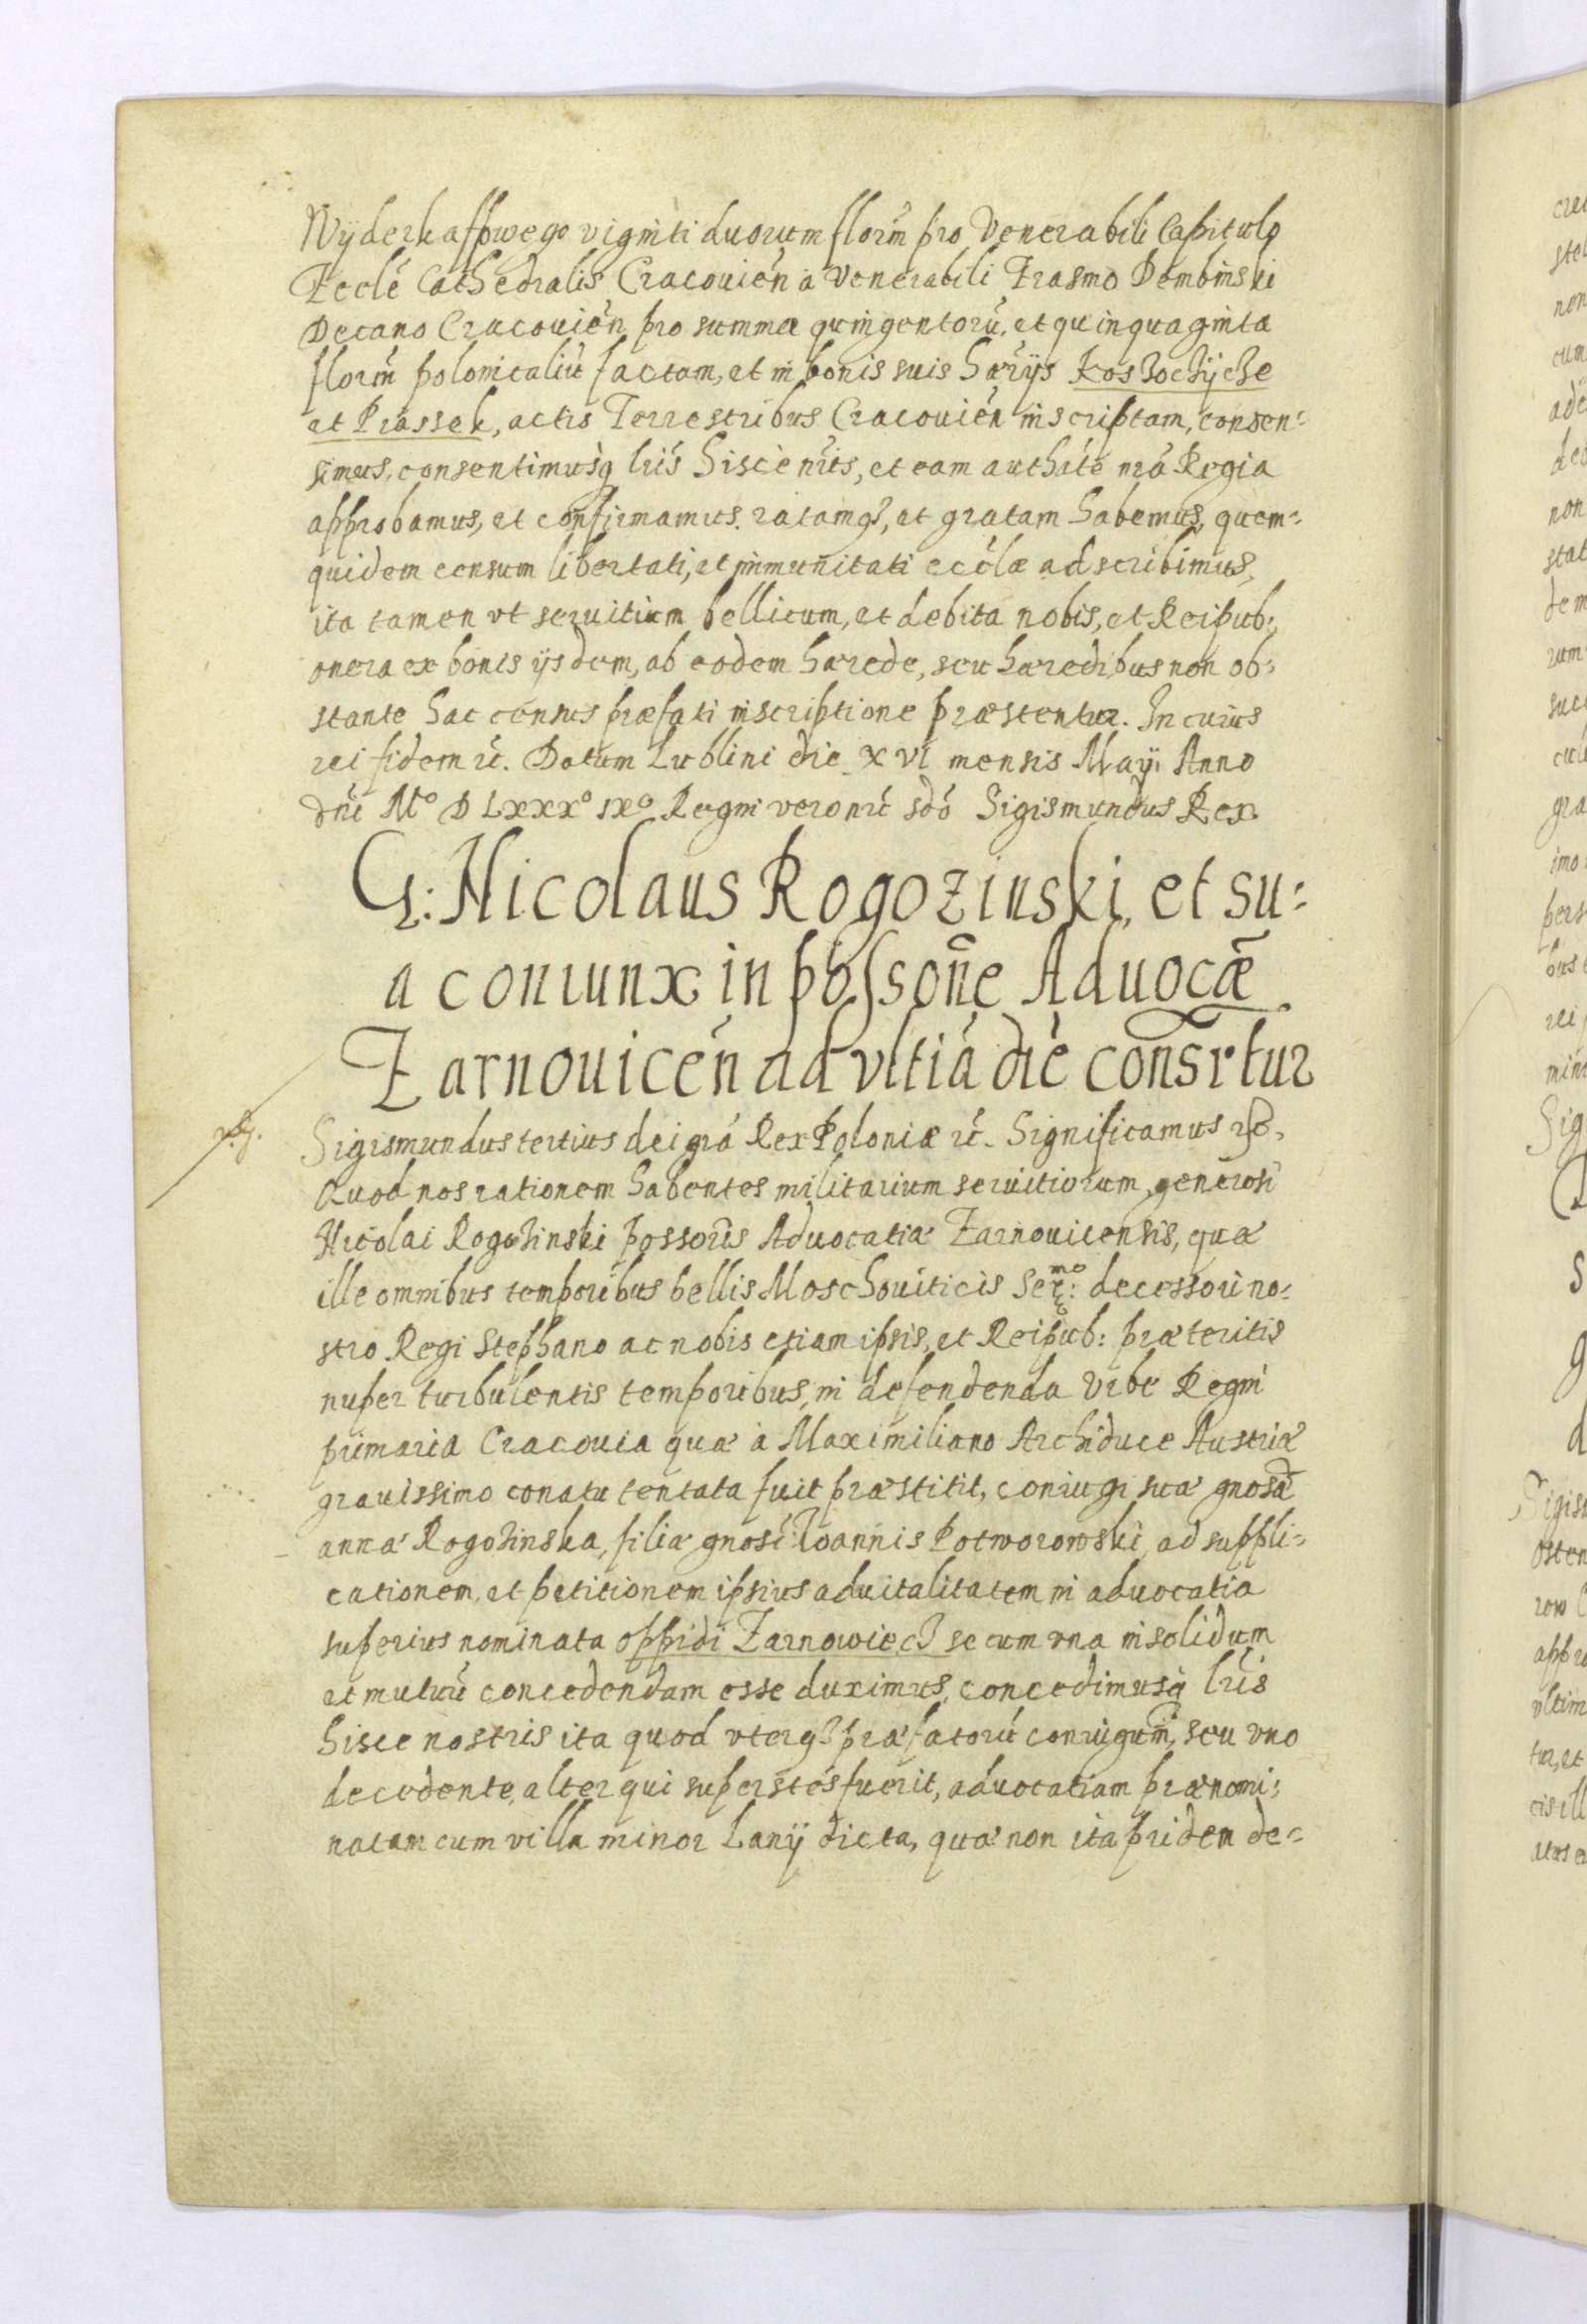 Wÿderkaffowego viginti duorum florm̃ pro Venerabili Capitulo
Ecclé Cathedralis Cracouién à Venerabili Erasmo Dembinski
Decano Cracouién pro summa quingentorú, et quinquaginta
florm̃ polonicaliú factam, et in bonis suis hærijs Koszoczÿcze
et Prassek, actis Terrestribus Cracouién inscriptam, consen:
simus, consentimusq̃ lris hisce nris, et eam authrite nra Regia
approbamus, et confirmamus. ratamq3, et gratam habemus, quem:
quidem censum libertati, et immunitati ecclæ adscribimus,
ita tamen vt seruitium bellicum, et debita nobis, et Reipub:
onera ex bonis ijsdem, ab eodem hærede, seu hæredibus non ob:
stante hac census præfati inscriptione præstentur. In cuius
rei fidem rc. Datum Lublini die XVI mensis Maÿ Anno
dni M° D LXXX° IX° Regni vero nri sdó Sigismundus Rex.
G: Nicolaus Rogozinski, et su:
a coniunx in possone Aduocæ
Zarnouicén ad vltiá dié consrtur
Sigismundus tertius dei grá Rex Poloniæ rc. Significamus rc.
Quod nos rationem habentes militarium seruitiorum, generosi
Nicolai Rogozinski possoris Aduocatiæ Zarnouicensis, quæ
ille omnibus temporibus bellis Moschouiticis Ser:mo decessori no:
stro Regi Stephano ac nobis etiam ipsis, et Reipub: præteritis
nuper turbulentis temporibus, in defendenda Vrbe Regni
primaria Cracouia quæ à Maximiliano Archiduce Austriæ
grauissimo conatu tentata fuit præstitit, coniugi suæ gnosæ
annæ Rogozinska, filiæ gnosi Ioannis Potworowski, ad suppli:
cationem, et petitionem ipsius aduitalitatem in aduocatia
superius nominata oppidi Zarnowiecz secum vna insolidum
et mutuú concedendam esse duximus, concedimusq̃ lris
hisce nostris ita quod vterq3 præfatorú coniugum, seu vno
decedente, alter qui superstes fuerit, aduocatiam prænomi:
natam cum villa minor Lanÿ dicta, quæ non ita pridem de: